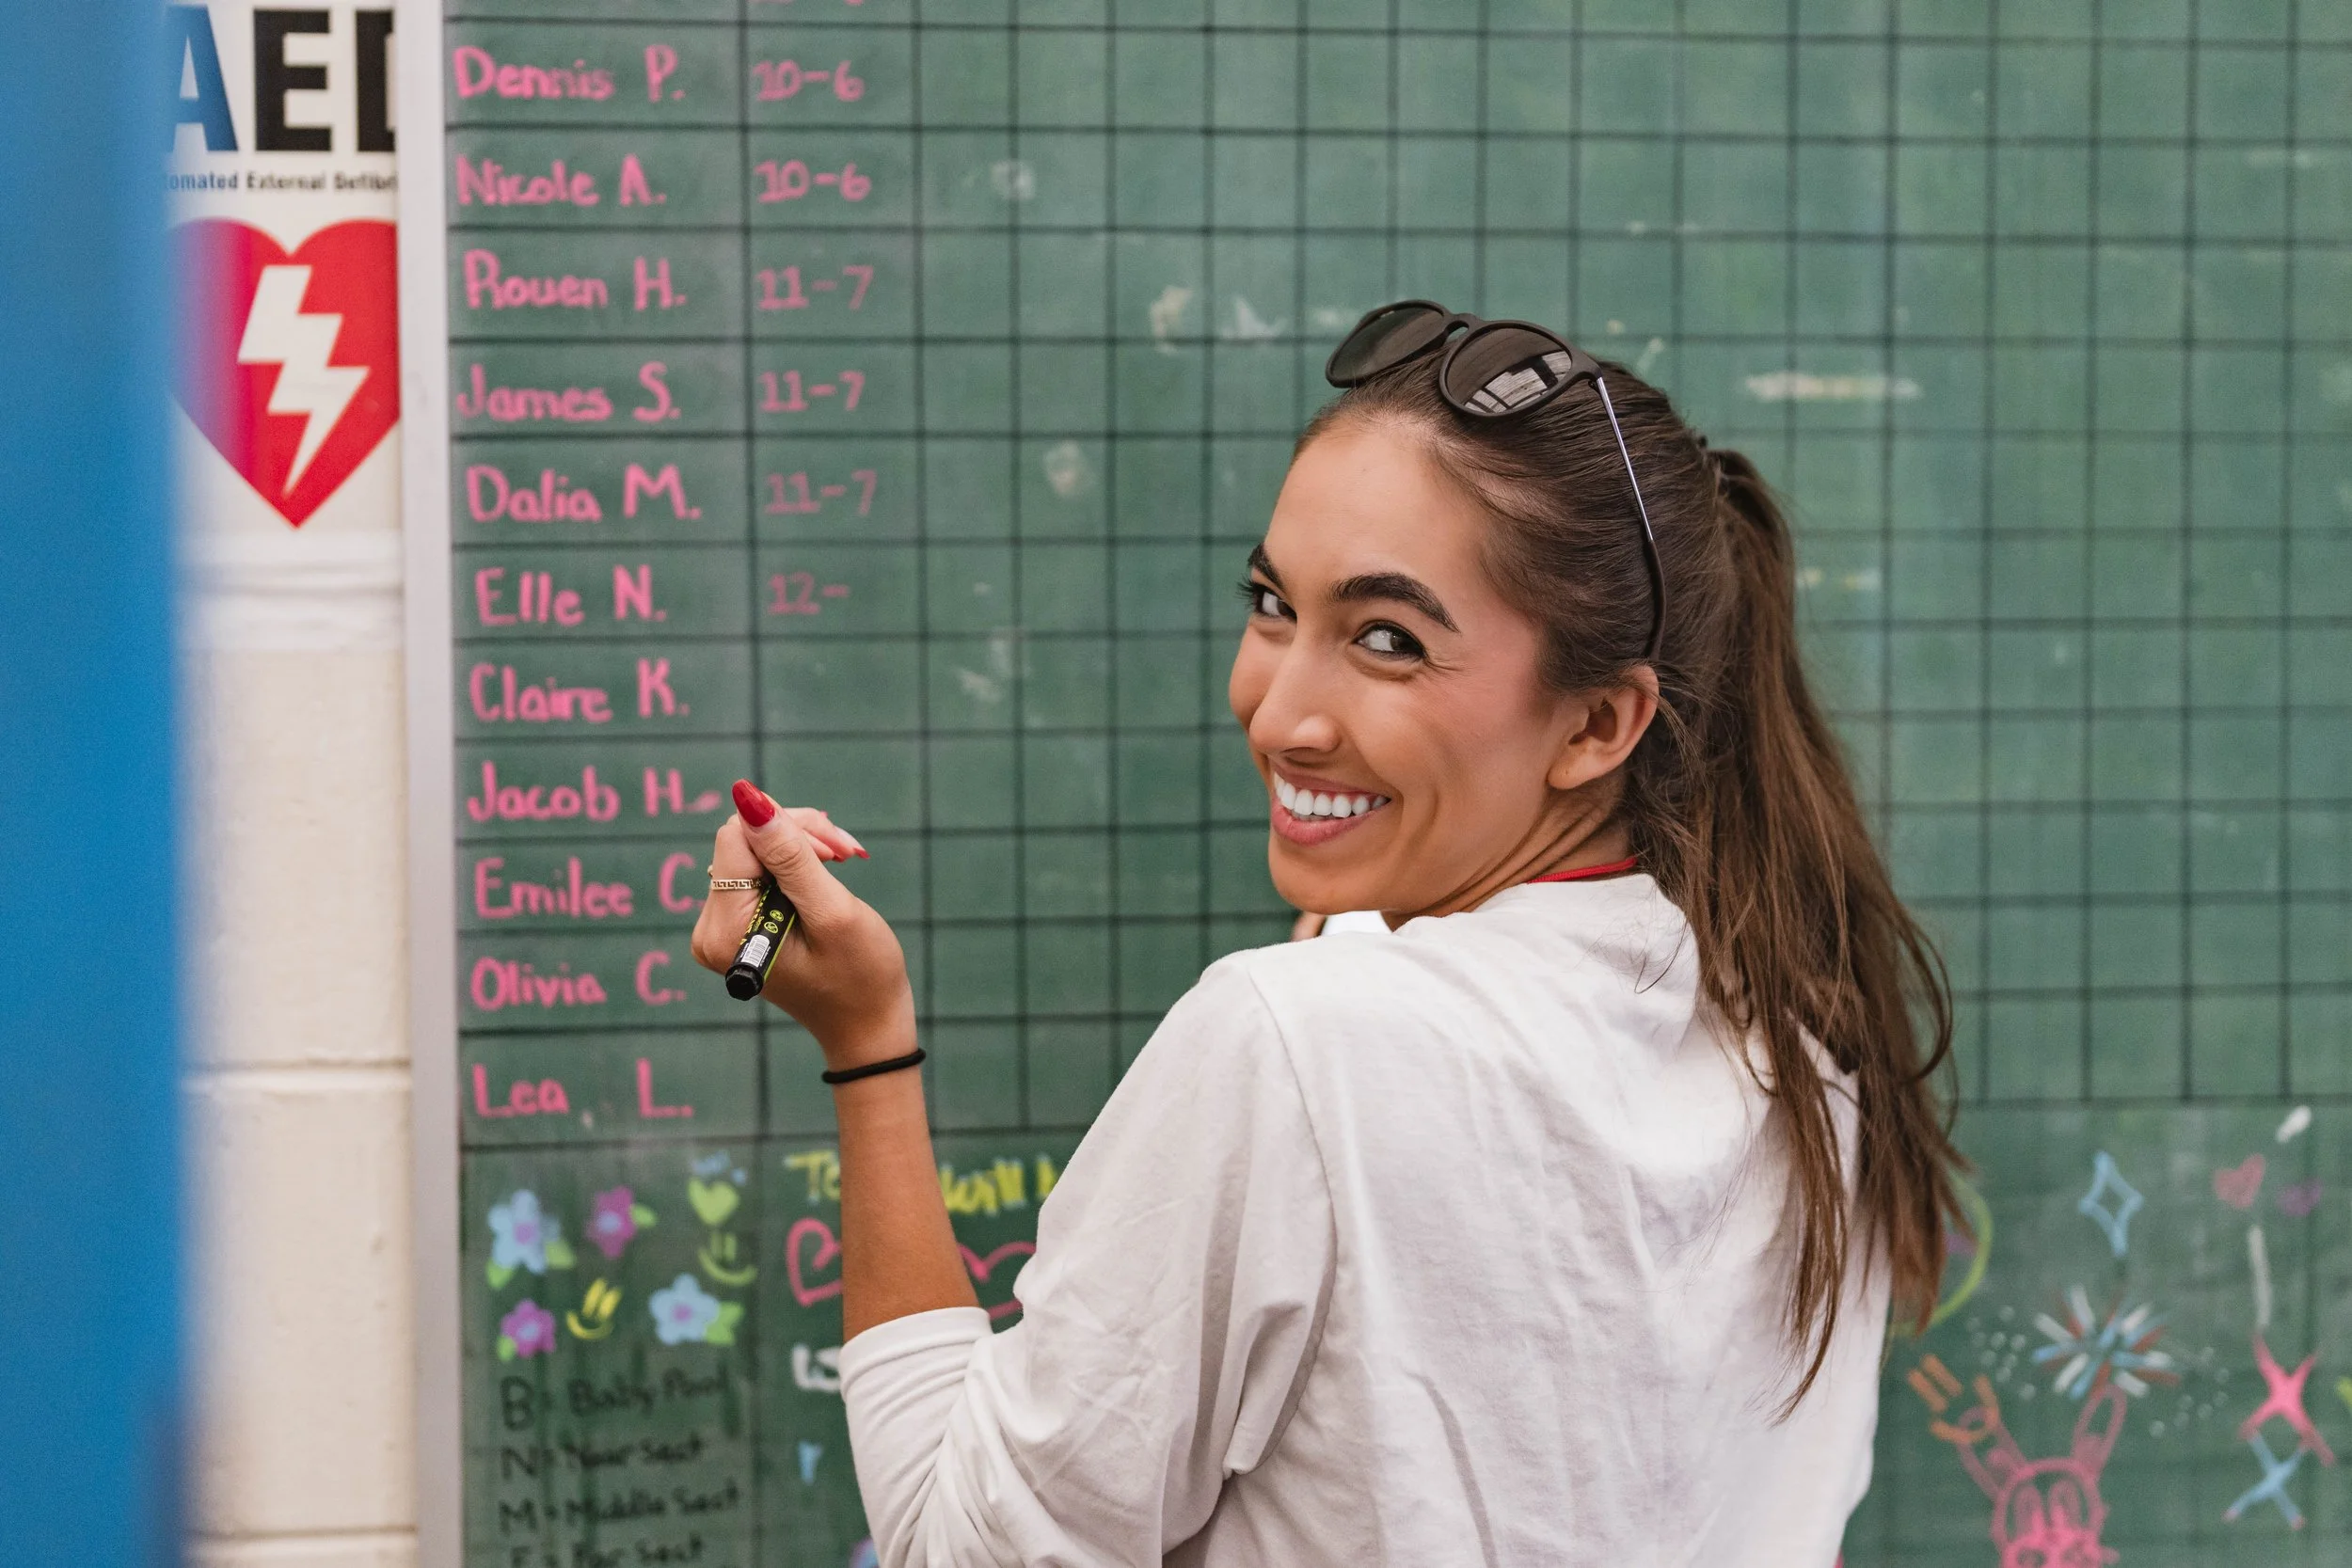 AED
omated External Defibr
Dennis P. 10-6
Nicole A. 10-6
Rouen H. 11-7
James S. 11-7
Dalia M. 11-7
Elle N. 12-
Claire K.
Jacob H.
Emilee C.
Olivia C.
Lea L.
will
B- Baby Pool
N- Near Sect
M- Middle Sect
F- Far Sect